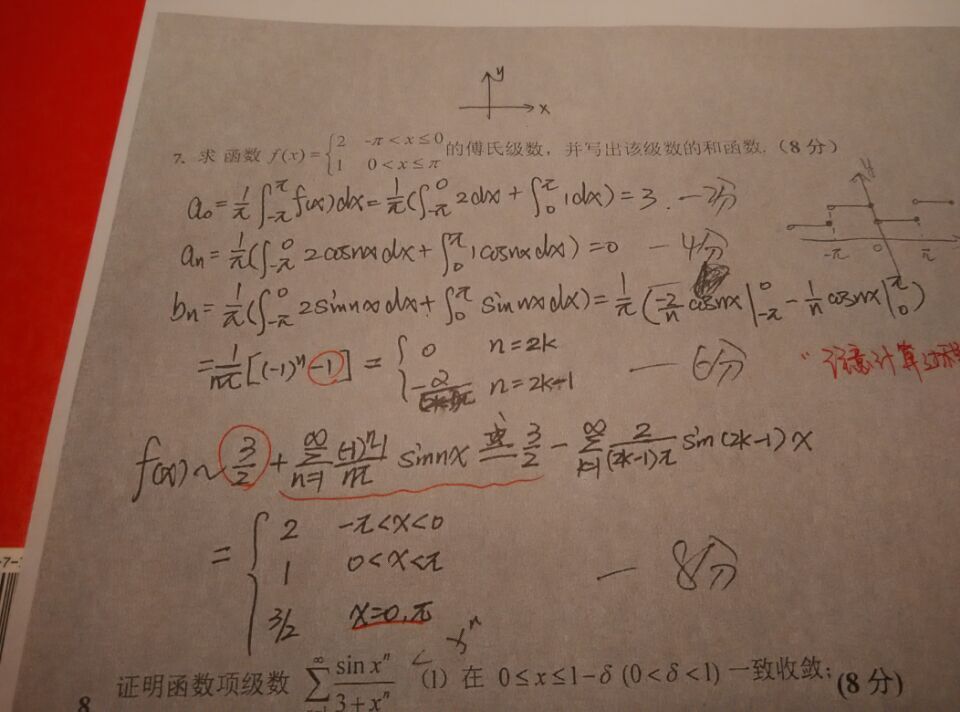 y
x
7. 求 函数 f(x)={2 -π<x≤0 的傅氏级数，并写出该级数的和函数.（8 分）
1 0<x≤π
a₀=1/π ∫_{-π}^{π} f(x)dx=1/π(∫_{-π}^{0} 2dx+∫_{0}^{π} 1dx)=3. —2分
aₙ=1/π(∫_{-π}^{0} 2cosnxdx+∫_{0}^{π} 1cosnxdx)=0 —4分
y
-π 0 π
bₙ=1/π(∫_{-π}^{0} 2sinnxdx+∫_{0}^{π} sinnxdx)=1/π(-2/n cosnx|_{-π}^{0} - 1/n cosnx|_{0}^{π})
=1/nπ[(-1)ⁿ-1]={0 n=2k —6分
n=2k-1
注意计算过程
f(x)~3/2+∑_{n=1}^{∞} (-1)ⁿ-1/nπ sinnx 或= 3/2-∑_{k=1}^{∞} 2/(2k-1)π sin(2k-1)x
={2 -π<x<0
1 0<x<π —8分
3/2 x=0,π
xⁿ
8 证明函数项级数 ∑^{∞} sin xⁿ/3+xⁿ (1) 在 0≤x≤1-δ (0<δ<1) 一致收敛；(8 分)
-7-